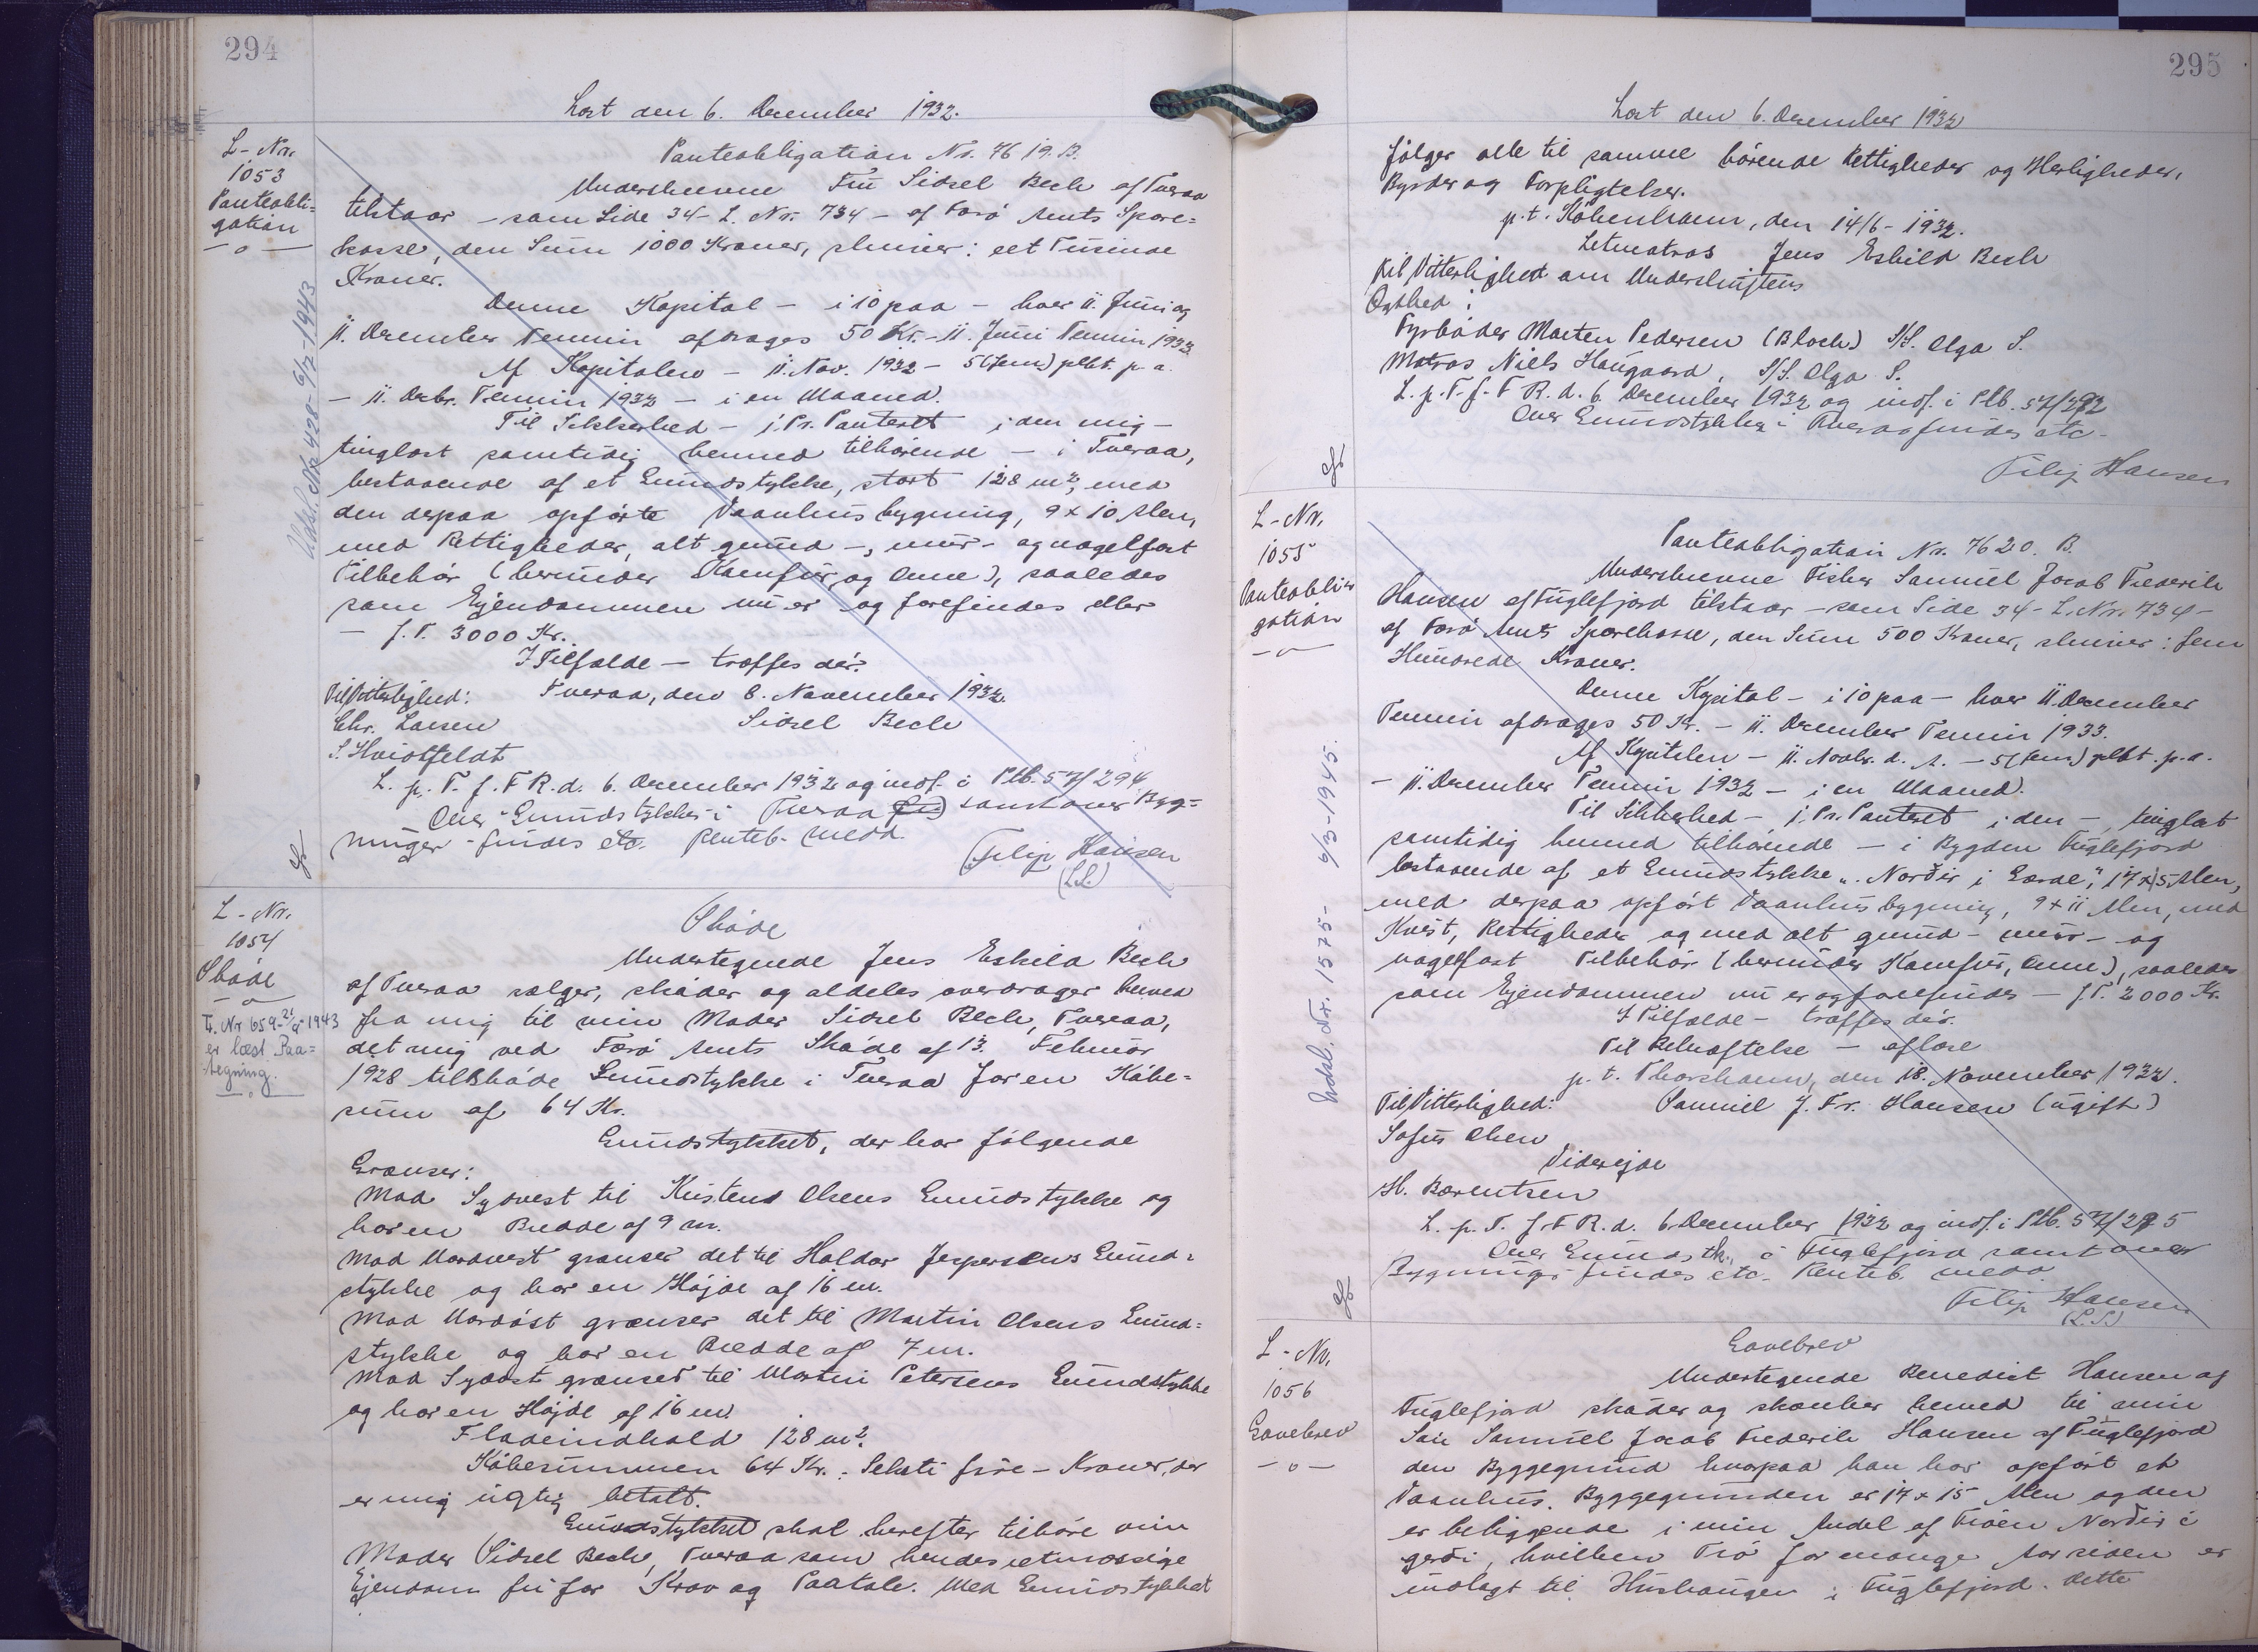 294
Læst den 6. December 1932.
L-Nr.
1053
Panteobli=
gation
—o—
Udsl. Nr. 428-6/2-1943
Panteobligation Nr. 7619. B.
Underskrevne Fru Sidsel Bech af Tveraa
tilstaar - som Side 34 - L. Nr. 734 - af Færø Amts Spare=
kasse, den Sum 1000 Kroner, skriver: eet Tusinde
Kroner.
Denne Kapital - i 10 paa - hver 11. Juni og
11. December Termin afdrages 50 Kr. - 11. Juni Termin 1933.
Af Kapitalen - 11. Nov. 1932 - 5 (fem) pCt. p. a.
- 11. Decbr. Termin 1932 - i en Maaned.
Til Sikkerhed - j. Pr. Panteret i den mig -
tinglæst samtidig hermed tilhørende - i Tveraa,
bestaaende af et Grundstykke, stort 128 m², med
den derpaa opførte Vaanhusbygning, 9 x 10 Alen,
med Rettigheder, alt grund-, mur- og nagelfast
Tilbehør (herunder Kamfur og Ovne), saaledes
som Ejendommen nu er og forefindes eller
- f. T. 3000 Kr.
I Tilfælde - træffes dér.
Til Vitterlighed: Tveraa, den 8. November 1932.
Chr. Larsen Sidsel Bech
S. Hvidtfeldt
L. p. T. f. F R. d. 6. December 1932 og indf. i Ptb. 57/294
Over "Grundstykke i Tveraa samt over Byg=
ninger - findes etc. Renteb. medd.
Filip Hansen
(L.S.)
L-Nr.
1054
Skøde
—o—
Tr. Nr 659-21/5-1943
er læst Paa=
tegning.
—o—
Skøde
Undertegnede Jens Eskild Bech
af Tveraa sælger, skøder og aldeles overdrager herved
fra mig til min Moder Sidsel Bech, Tveraa,
det mig ved Færø Amts Skøde af 13. Februar
1928 tilskødede Grundstykke i Tveraa for en Købe=
sum af 64 Kr.
Grundstykket, der har følgende
Grænser:
Mod Sydvest til Kristens Olsens Grundstykke og
har en Bredde af 9 m.
Mod Nordvest grænser det til Haldor Jespersens Grund=
stykke og har en Højde af 16 m.
Mod Nordøst grænser det til Martin Olsens Grund=
stykke og har en Bredde af 7 m.
Mod Sydøst grænser til Martin Petersens Grundstykke
og har en Højde af 16 m.
Fladeindhold 128 m².
Købesummen 64 Kr. : Seksti fire - Kroner, der
er mig rigtig betalt.
Grundstykket skal herefter tilhøre min
Moder Sidsel Bech, Tveraa som hendes retmæssige
Ejendom fri for Krav og Paatale. Med Grundstykket
295
Læst den 6. December 1932
følger alle til samme hørende Rettigheder og Herligheder,
Byrder og Forpligtelser.
p. t. København, den 14/6 - 1932.
Letmatros Jens Eskild Bech
Til Vitterlighed om Underskriftens
Ægthed:
Fyrbøder Morten Pedersen (Bloch) S/S. Olga S.
Matros Niels Haugaard, S/S. Olga S.
L. p. T. f. F R. d. 6. December 1932 og indf. i Ptb. 57/292
Over Grundstykke - Tveraa findes etc.
Filip Hansen
L-Nr.
1055
Panteobli=
gation
—o—
Udsl. Nr. 1575- 6/3-1945.
Panteobligation Nr. 7620. B.
Underskrevne Fisker Samuel Jacob Frederik
Hansen af Fuglefjord tilstaar - som Side 34 - L. Nr. 734 -
af Færø Amts Sparekasse, den Sum 500 Kroner, skriver: fem
Hundrede Kroner.
Denne Kapital - i 10 paa - hver 11. December
Termin afdrages 50 Kr. - 11. December Termin 1933.
Af Kapitalen - 11. Novbr. d. A. - 5 (fem) pCt. p. a.
- 11. December Termin 1932 - i en Maaned.
Til Sikkerhed - j. Pr. Panteret i den -, tinglæst
samtidig hermed tilhørende - i Bygden Fuglefjord
bestaaende af et Grundstykke "Norðir i Gærde", 17 x 15 Alen,
med derpaa opført Vaanhusbygning, 9 x 11 Alen, med
Kvist, Rettigheder og med alt grund- mur- og
nagelfast Tilbehør (herunder Kamfur, Ovne), saaledes
som Ejendommen nu er og forefindes - f. T. 2000 Kr.
I Tilfælde - træffes dér.
Til Bekræftelse - aflæse
p. t. Thorshavn, den 18. November 1932.
Til Vitterlighed: Samuel J. Fr. Hansen (ugift)
Sofus Olsen
Viderejde
H. Bærentsen
L. p. T. f. F R. d. 6 December 1932 og indf. i Ptb. 57/295
Over Grundstk. i Fuglefjord samt over
Bygninger findes etc. Renteb. medd.
Filip Hansen
(L.S.)
L-Nr.
1056
Gavebrev
—o—
Gavebrev
Undertegnede Benedict Hansen af
Fuglefjord skøder og skænker herved til min
Søn Samuel Jacob Frederik Hansen af Fuglefjord
den Byggegrund hvorpaa han har opført et
Vaanhus. Byggegrunden er 17 x 15 Alen og den
er beliggende i min Andel af Trøen Norðir i
gerði, hvilken Trø for mange Aar siden er
indlagt til Hushaugen i Fuglefjord. Dette